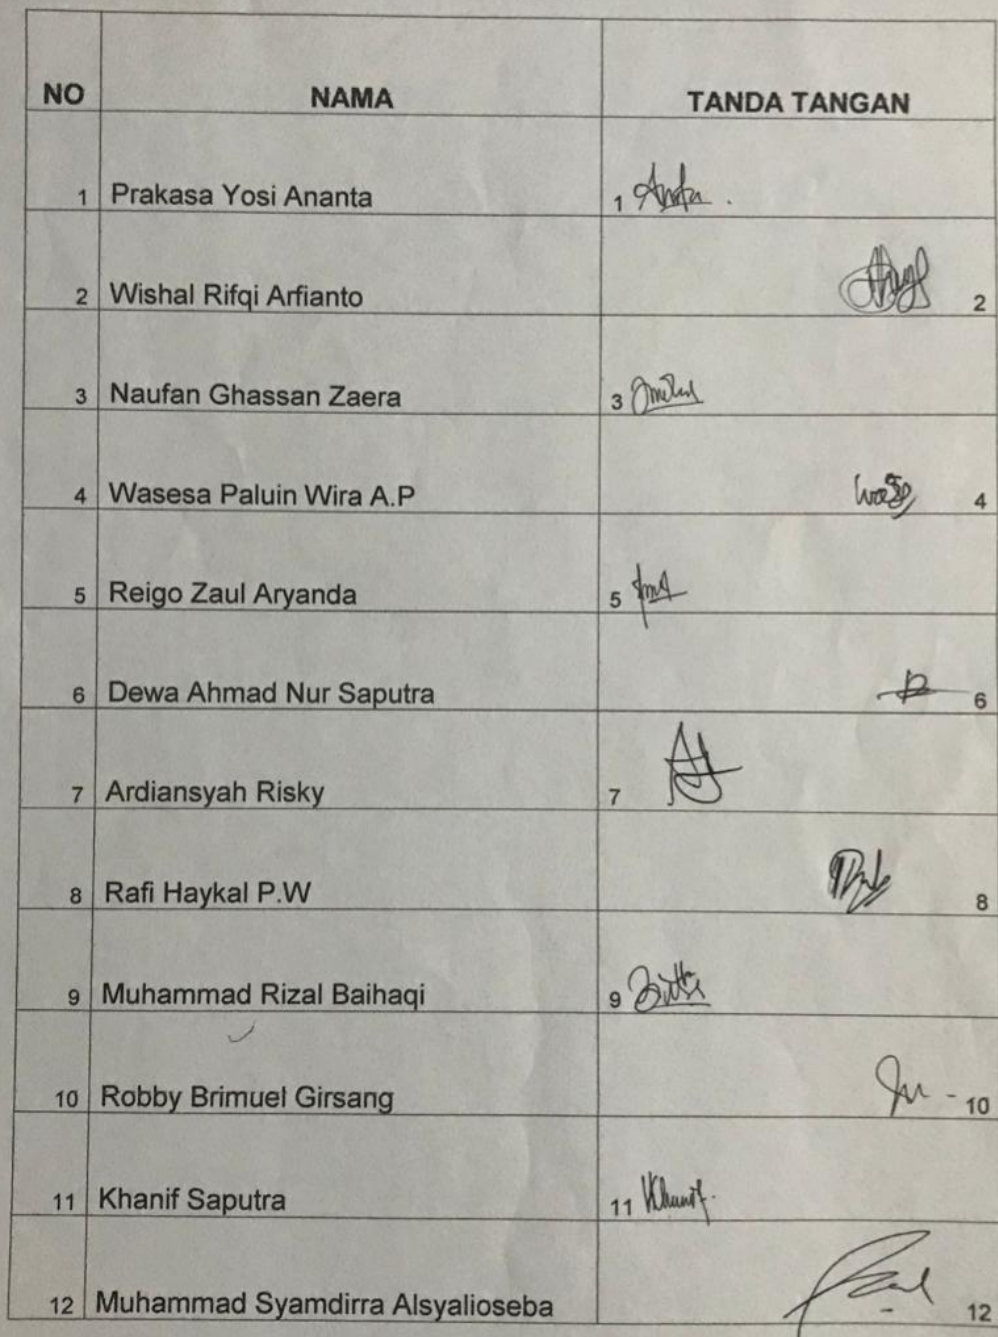 NO NAMA TANDA TANGAN
1 Prakasa Yosi Ananta 1
2 Wishal Rifqi Arfianto 2
3 Naufan Ghassan Zaera 3
4 Wasesa Paluin Wira A.P 4
5 Reigo Zaul Aryanda 5
6 Dewa Ahmad Nur Saputra 6
7 Ardiansyah Risky 7
8 Rafi Haykal P.W 8
9 Muhammad Rizal Baihaqi 9
10 Robby Brimuel Girsang 10
11 Khanif Saputra 11 Khanif.
12 Muhammad Syamdirra Alsyalioseba 12